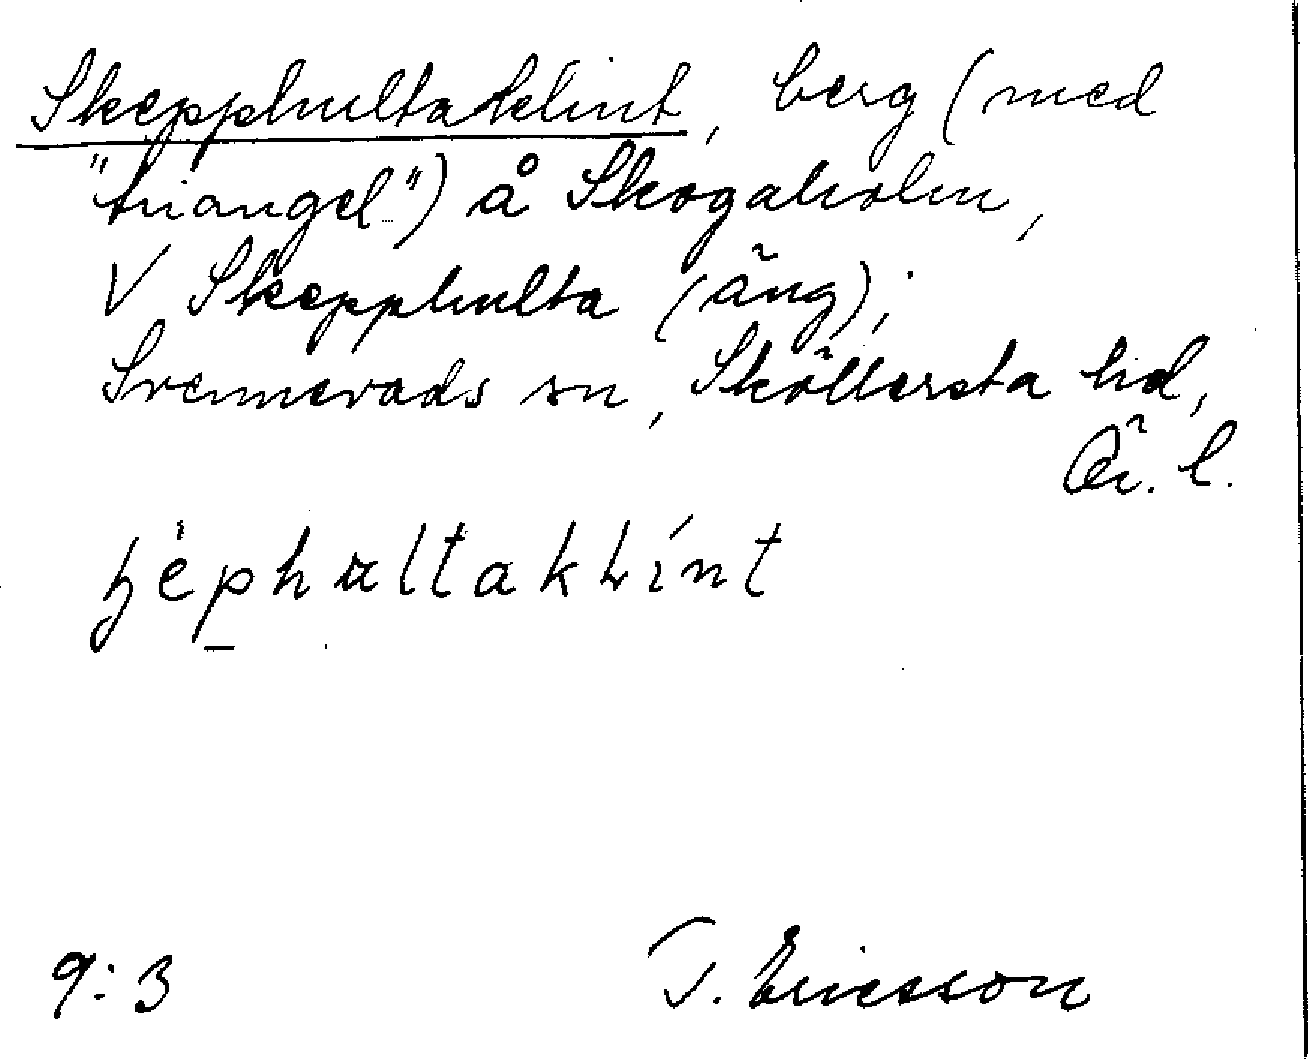 Skepphultaklint, berg (med
"triangel") å Skogaholm,
V Skepphulta (äng);
Svennevads sn, Sköllersta hd,
Ör. l.
9:3
T. Ericsson